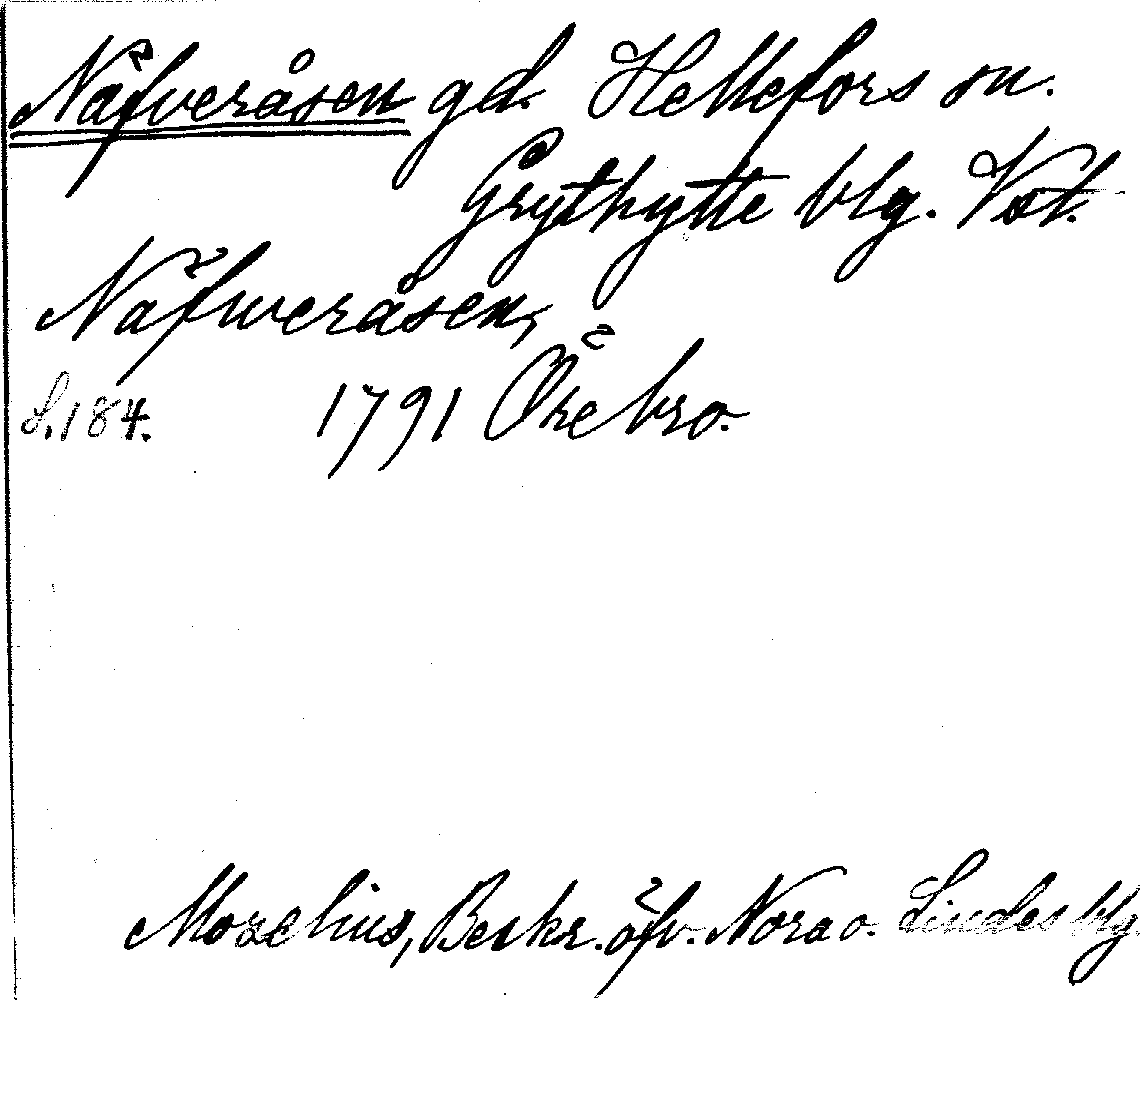 Näfveråsen gd. Hellefors sn.
Grythytte blg. Vstm.
Näfweråsen,
S. 184. 1791 Örebro.
Moselius, Beskr. öfv. Nora o. Lindes blg.